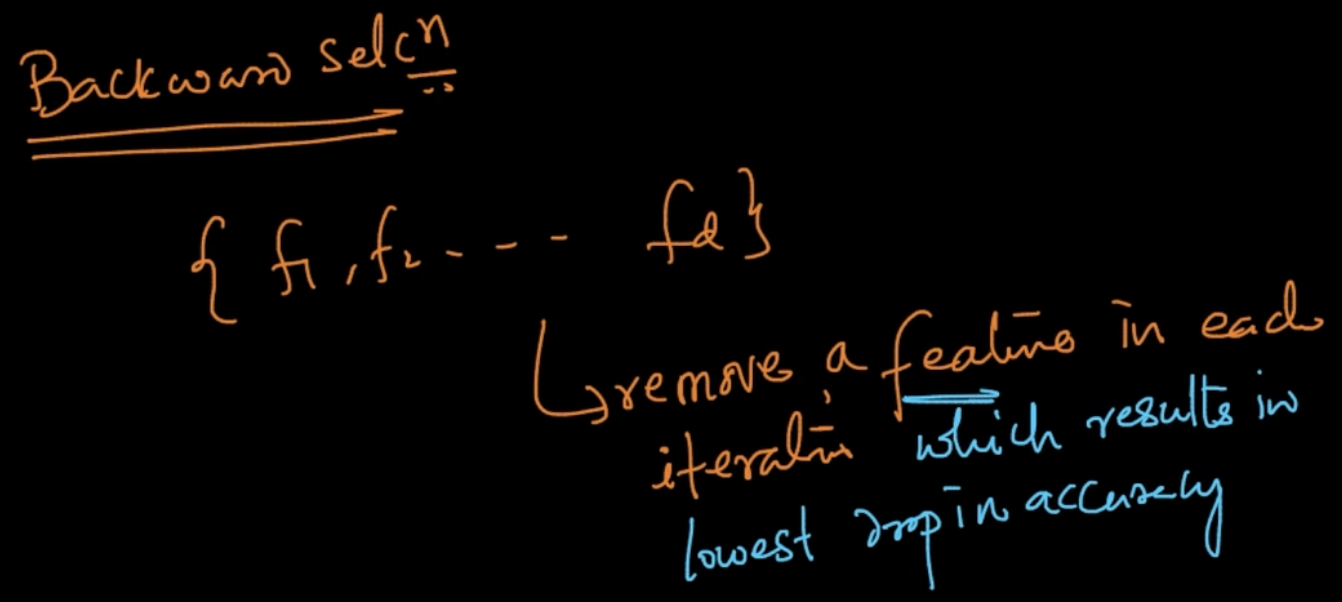 Backward selcn
{ f1, f2 - - - - fd }
↳ remove a feature in each
iteration which results in
lowest drop in accuracy